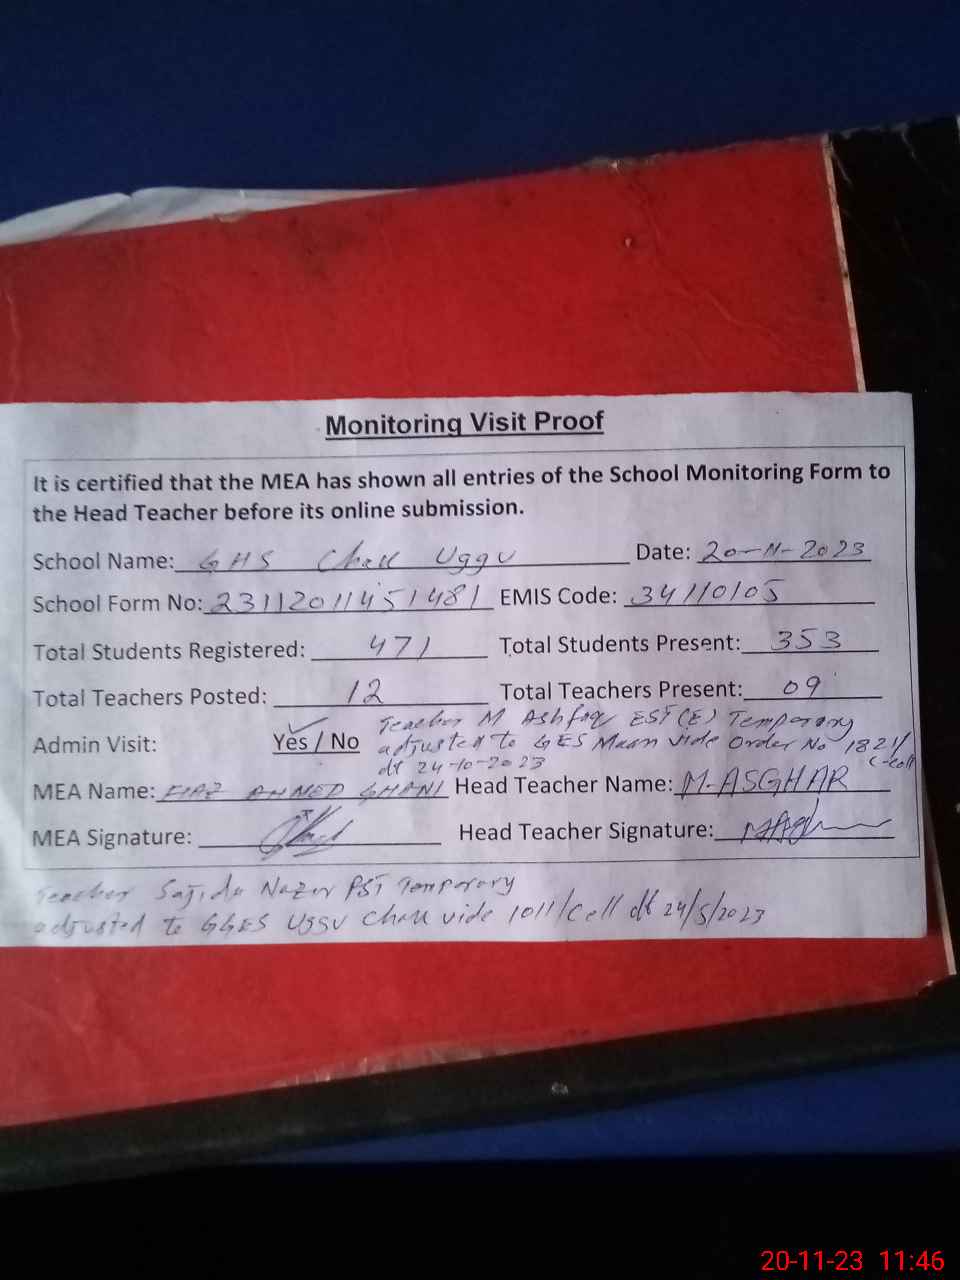 Monitoring Visit Proof
It is certified that the MEA has shown all entries of the School Monitoring Form to
the Head Teacher before its online submission.
School Name: GHS Chak Uggu Date: 20-11-2023
School Form No: 23112011451481 EMIS Code: 34110105
Total Students Registered: 471 Total Students Present: 353
Total Teachers Posted: 12 Total Teachers Present: 09
Teacher M Ashfaq EST(E) Temporary
Admin Visit: Yes / No adjusted to GES Maan vide Order No 1821/
dt 24-10-2023 C-Cell
MEA Name: FIAZ AHMED GHANI Head Teacher Name: M-ASGHAR
MEA Signature: Head Teacher Signature:
Teacher Sajida Nazir PST Temporary
adjusted to GGES Uggu Chak vide 1011/Cell dt 24/5/2023
20-11-23 11:46